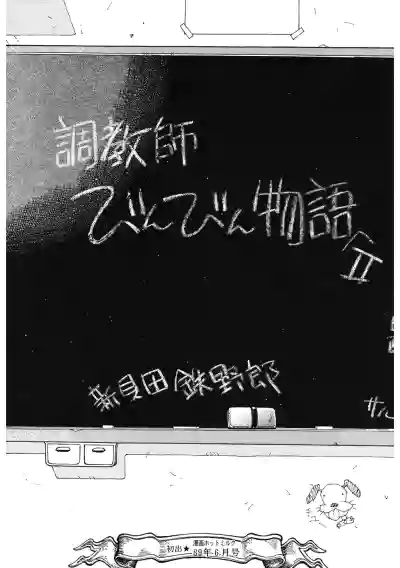 調教師
びんびん物語
Ⅱ
新貝田 鉄野郎
サル
チュー
初出★
漫画ホットミルク
89年・6月号